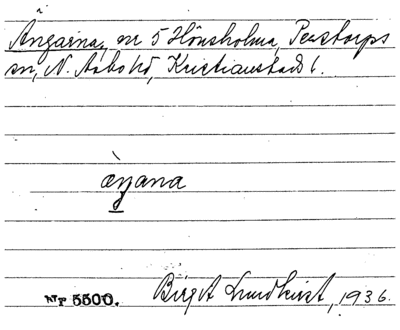 Ängarna, nr 5 Hönsholma, Perstorps
sn, N. Åsbo hd, Kristianstads l.
àŋana
Nr 5500. Birgit Lundkvist, 1936.